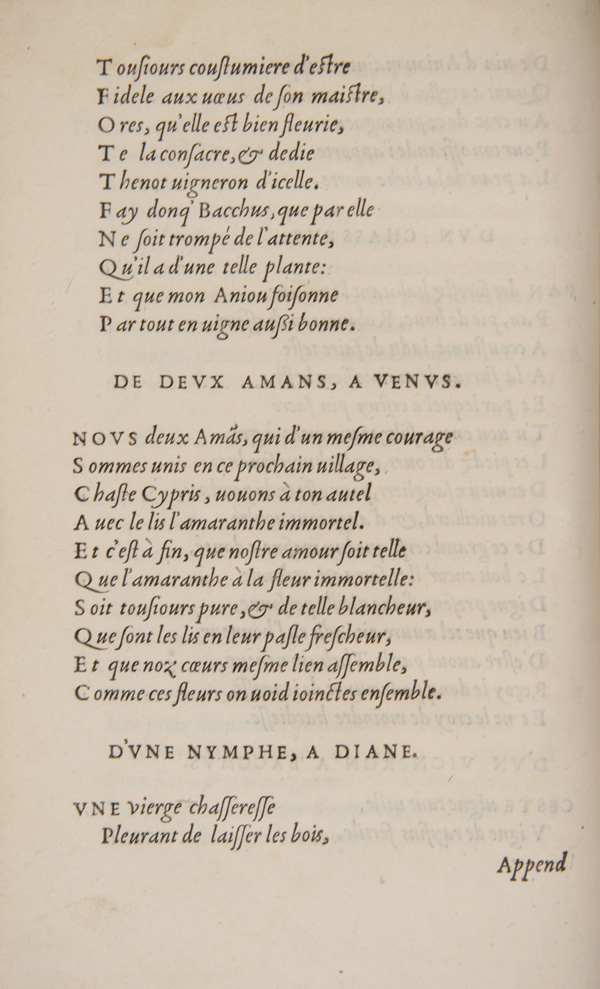 Touſiours couſtumiere d'eſtre
Fidele aux uœus de ſon maiſtre,
Ores, qu'elle eſt bien fleurie,
Te la conſacre, & dedie
Thenot uigneron d'icelle.
Fay donq' Bacchus, que par elle
Ne ſoit trompé de l'attente,
Qu'il a d'une telle plante:
Et que mon Aniou foiſonne
Par tout en uigne außi bonne.
DE DEVX AMANS, A VENVS.
NOVS deux Amãs, qui d'un meſme courage
Sommes unis en ce prochain uillage,
Chaſte Cypris, uouons à ton autel
Auec le lis l'amaranthe immortel.
Et c'eſt à fin, que noſtre amour ſoit telle
Que l'amaranthe à la fleur immortelle:
Soit touſiours pure, & de telle blancheur,
Que ſont les lis en leur paſle freſcheur,
Et que noz cœurs meſme lien aſſemble,
Comme ces fleurs on uoid ioinctes enſemble.
D'VNE NYMPHE, A DIANE.
VNE vierge chaſſereſſe
Pleurant de laiſſer les bois,
Append